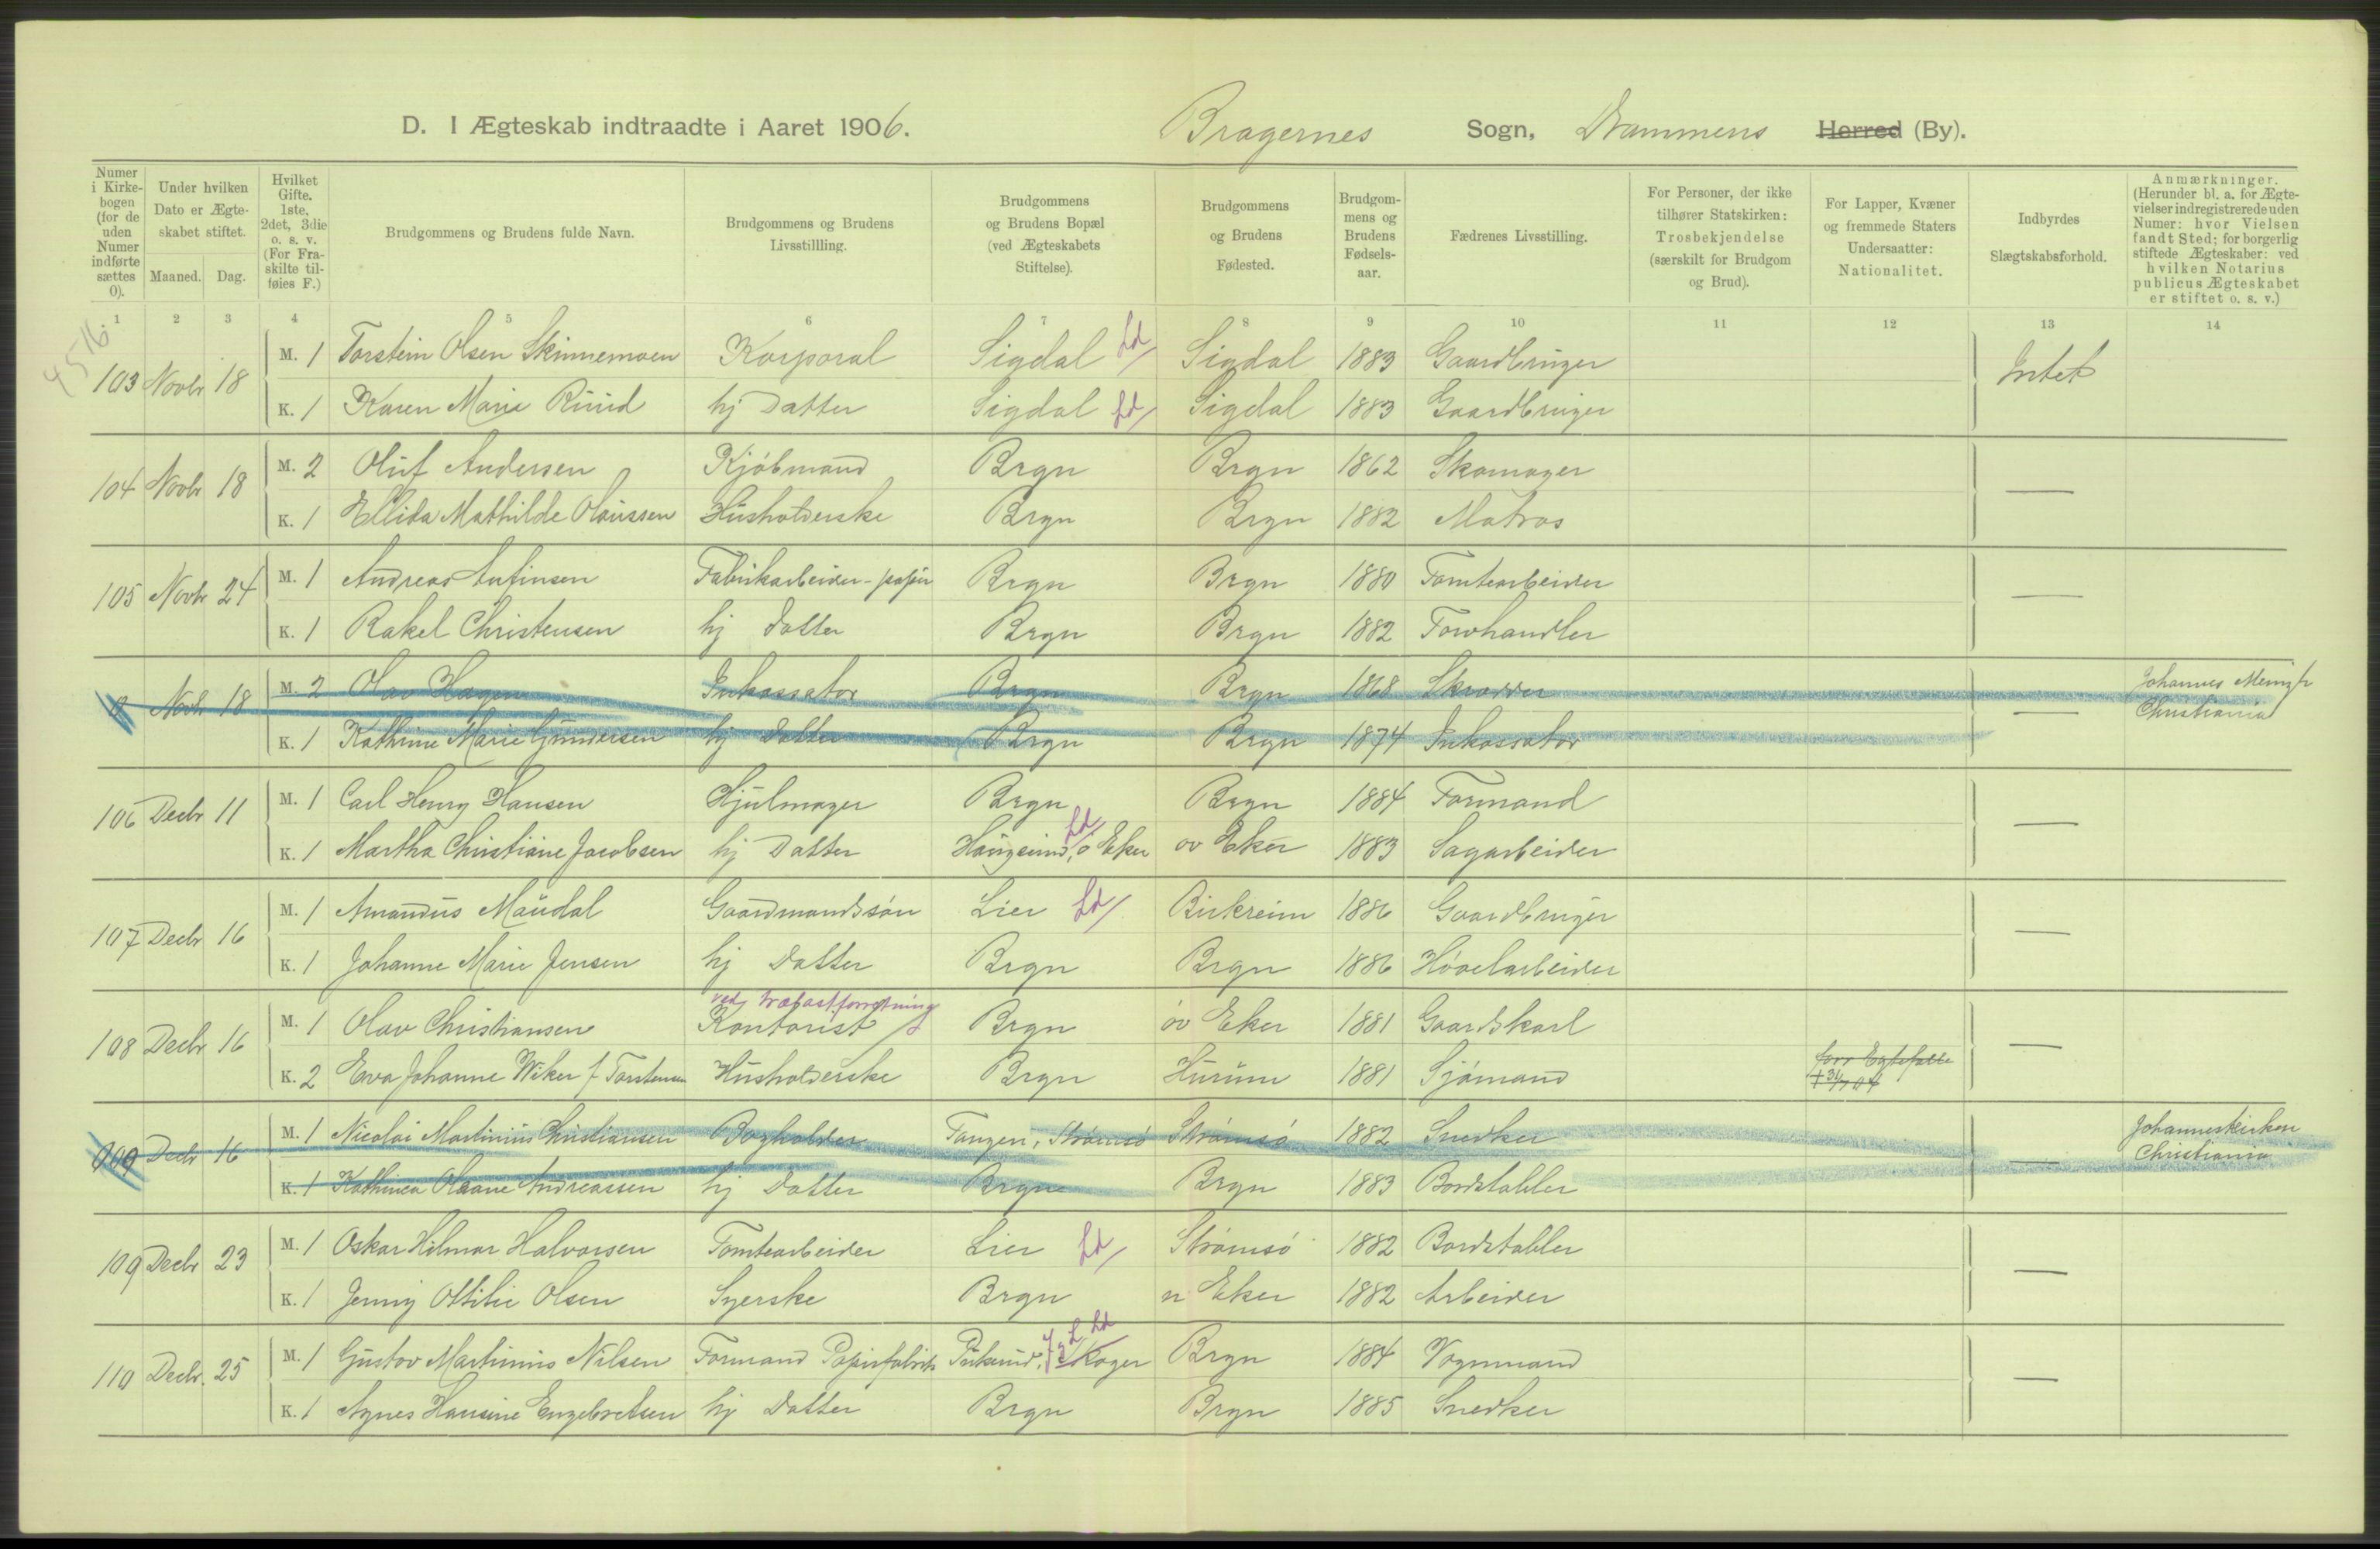 D. I Ægteskab indtraadte i Aaret 1906. Bragernes Sogn, Drammens Herred (By).
Numer i Kirkebogen (for de uden Numer indførte sættes 0).
Under hvilken Dato er Ægteskabet stiftet.
Maaned. Dag.
Hvilket Gifte. 1ste, 2det, 3die o. s. v. (For Fraskilte tilføies F.)
Brudgommens og Brudens fulde Navn.
Brudgommens og Brudens Livsstillling.
Brudgommens og Brudens Bopæl (ved Ægteskabets Stiftelse).
Brudgommens og Brudens Fødested.
Brudgommens og Brudens Fødselsaar.
Fædrenes Livsstilling.
For Personer, der ikke tilhører Statskirken: Trosbekjendelse (særskilt for Brudgom og Brud).
For Lapper, Kvæner og fremmede Staters Undersaatter: Nationalitet.
Indbyrdes Slægtskabsforhold.
Anmærkninger. (Herunder bl. a. for Ægtevielser indregistrerede uden Numer: hvor Vielsen fandt Sted; for borgerlig stiftede Ægteskaber: ved hvilken Notarius publicus Ægteskabet er stiftet o. s. v.)
1 2 3 4 5 6 7 8 9 10 11 12 13 14
4516
103 Novbr 18 M. 1 Torstein Olsen Skinnemoen Korporal Sigdal Ld Sigdal 1883 Gaardbruger Intet
K. 1 Karen Marie Ruud hj Datter Sigdal Ld Sigdal 1883 Gaardbruger
104 Novbr 18 M. 2 Oluf Andersen Kjøbmand Brgn Brgn 1862 Skomager —
K. 1 Ellida Mathilde Olaussen Husholderske Brgn Brgn 1882 Matros
105 Novbr 24 M. 1 Andreas Anfinsen Fabrikarbeider - papir Brgn Brgn 1880 Tomtearbeider —
K. 1 Rakel Christensen hj Datter Brgn Brgn 1882 Torvhandler
0 Novbr 18 M. 2 Olav Hagen Inkassator Brgn Brgn 1868 Skrædder — Johannes Menigh
Christiania
K. 1 Kathrine Marie Gundersen hj Datter Brgn Brgn 1874 Inkassator
106 Decbr 11 M. 1 Carl Henry Hansen Hjulmager Brgn Brgn 1884 Formand —
K. 1 Martha Christiane Jacobsen hj Datter Haugsund, ø Eker Ld øv Eker 1883 Sagarbeider
107 Decbr 16 M. 1 Amandus Maudal Gaardmandssøn Lier Ld Birkreim 1886 Gaardbruger —
K. 1 Johanne Marie Jensen hj Datter Brgn Brgn 1886 Høvelarbeider
ved trælastforretning
108 Decbr 16 M. 1 Olav Christiansen Kontorist Brgn øv Eker 1881 Gaardskarl —
K. 2 Eva Johanne Wiker f Torstensen Husholderske Brgn Hurum 1881 Sjømand forr Egtefelle
† 31/7 04
109 Decbr 16 M. 1 Nicolai Martinius Christiansen Bogholder Tangen, Strømsø Strømsø 1882 Snedker — Johanneskirken
Christiania
K. 1 Kathinca Olaane Andreassen hj Datter Brgn Brgn 1883 Bordstabler
109 Decbr 23 M. 1 Oskar Hilmar Halvorsen Tomtearbeider Lier Ld Strømsø 1882 Bordstabler —
K. 1 Jenny Ottilie Olsen Syerske Brgn n Eker 1882 Arbeider
110 Decbr. 25 M. 1 Gustav Martinius Nilsen Formand Papirfabrik Skoger Ld Brgn 1884 Vognmand —
K. 1 Agnes Hansine Engebretsen hj Datter Brgn Brgn 1885 Snedker